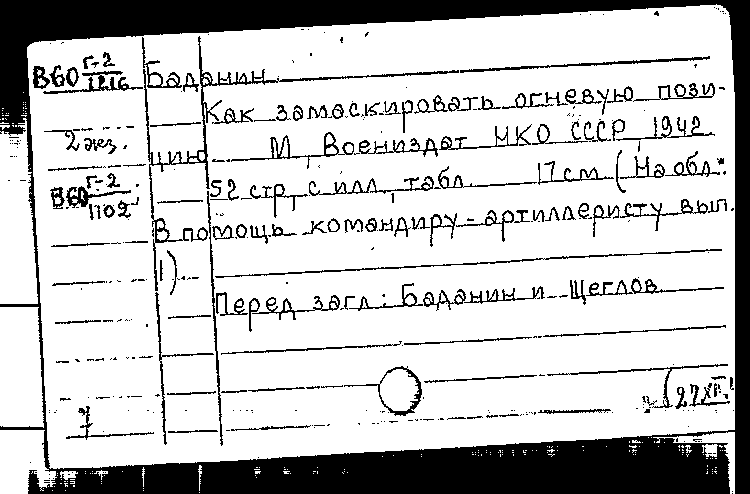 В60 Г-2 Баданин.
Как замаскировать огневую пози-
2 экз. цию М, Воениздат НКО СССР, 1942
52 стр, с илл, табл. 17 см (На обл:
В60 Г-2
1102
В помощь командиру-артиллеристу вып.
1).
Перед загл: Баданин и Щеглов
7